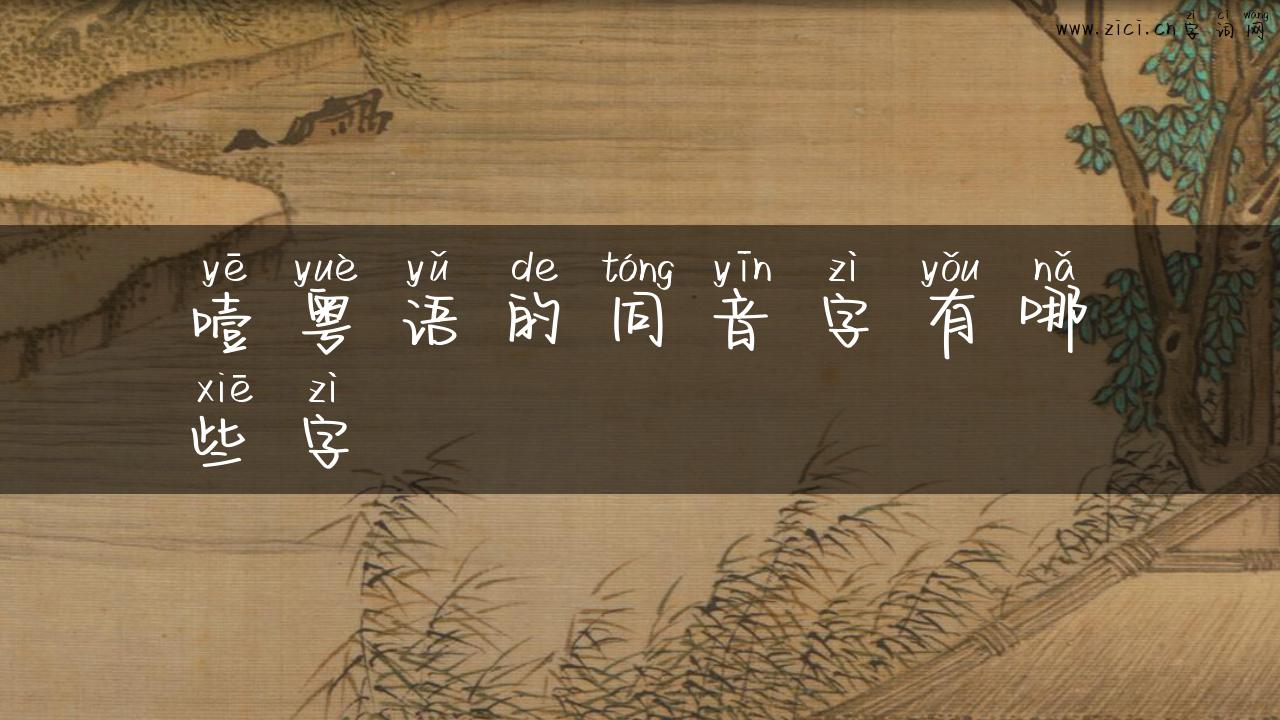 zì cí wǎng
www.zici.cn字词网
yē yuè yǔ de tóng yīn zì yǒu nǎ
噎粤语的同音字有哪
xiē zì
些字